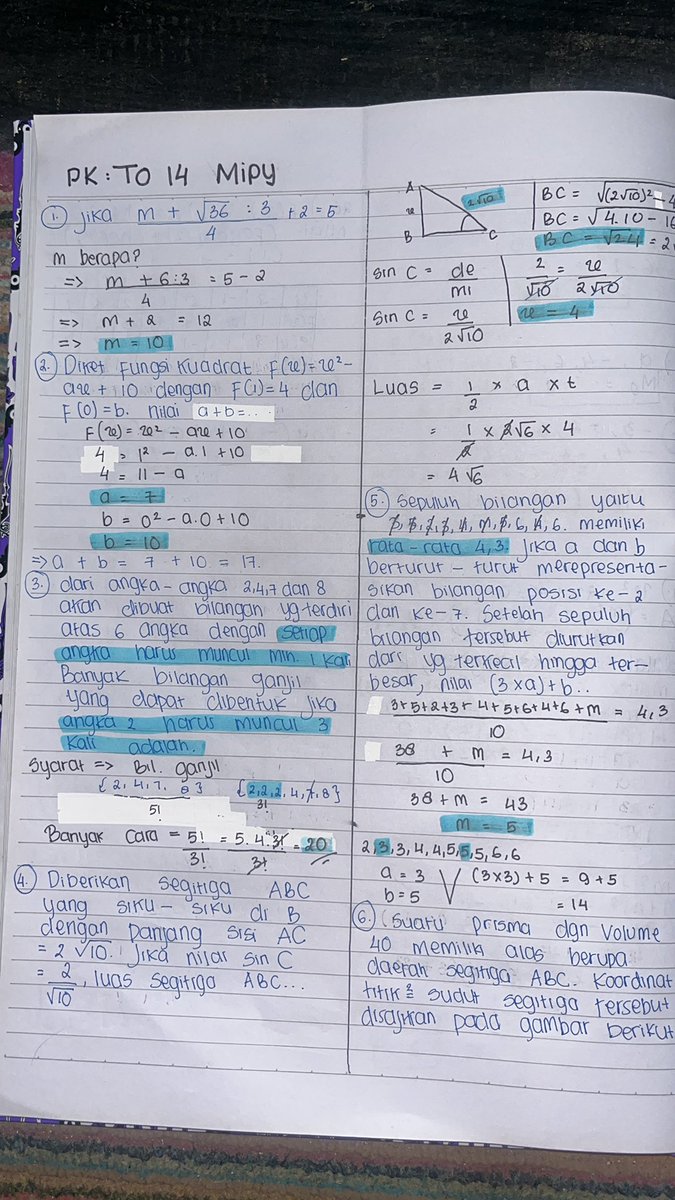 PK : TO 14 MIPY
1. Jika m + √36 : 3 / 4 + 2 = 5
m berapa?
=> m + 6:3 / 4 = 5 - 2
=> m + 2 = 12
=> m = 10
2. Diket fungsi kuadrat F(x) = x² -
ax + 10 dengan F(1) = 4 dan
F(0) = b. nilai a+b = ...
F(x) = x² - ax + 10
4 = 1² - a.1 + 10
4 = 11 - a
a = 7
b = 0² - a.0 + 10
b = 10
=> a + b = 7 + 10 = 17.
3. dari angka-angka 2,4,7 dan 8
akan dibuat bilangan yg terdiri
atas 6 angka dengan setiap
angka harus muncul min. 1 kali
Banyak bilangan ganjil
yang dapat dibentuk jika
angka 2 harus muncul 3
kali adalah.
Syarat => Bil. ganjil
{2, 4, 7, 8} {2,2,2,4,7,8}
5! 3!
Banyak cara = 5!/3! = 5.4.3!/3! = 20
4. Diberikan segitiga ABC
yang siku-siku di B
dengan panjang sisi AC
= 2√10. Jika nilai sin C
= 2/√10, luas segitiga ABC...
A
x
B
C
2√10
BC = √(2√10)² - 4
BC = √4.10 - 16
BC = √24 = 2
sin C = de/mi
2/√10 = x/2√10
sin C = x/2√10
x = 4
Luas = 1/2 × a × t
= 1/2 × 2√6 × 4
= 4√6
5. Sepuluh bilangan yaitu
6, 4, 6. memiliki
rata-rata 4,3. Jika a dan b
berturut-turut merepresenta-
sikan bilangan posisi ke-2
dan ke-7. Setelah sepuluh
bilangan tersebut diurutkan
dari yg terkecil hingga ter-
besar, nilai (3×a)+b..
3+5+2+3+4+5+6+4+6+m / 10 = 4,3
38 + m / 10 = 4,3
38 + m = 43
m = 5
2,3,3,4,4,5,5,5,6,6
a = 3 (3×3) + 5 = 9 + 5
b = 5 = 14
6. (Suatu prisma dgn volume
40 memilik alas berupa
daerah segitiga ABC. Koordinat
titik² sudut segitiga tersebut
disajikan pada gambar berikut